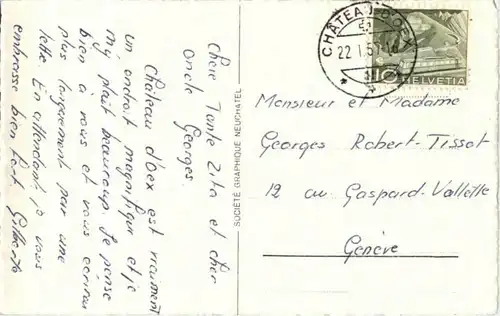 Chère Tante Zita et cher
oncle Georges.
Château d'oex est vraiment
un endroit magnifique et je
m'y plait beaucoup. Je pense
bien à vous et vous écrirai
plus longement par une
lettre. En attendant je vous
embrasse bien fort
SOCIÉTÉ GRAPHIQUE NEUCHATEL
CHÂTEAU-D'OEX
22.1.5
10 HELVETIA
Monsieur et Madame
Georges Robert-Tissot
12 av Gaspard-Vallette
Genève